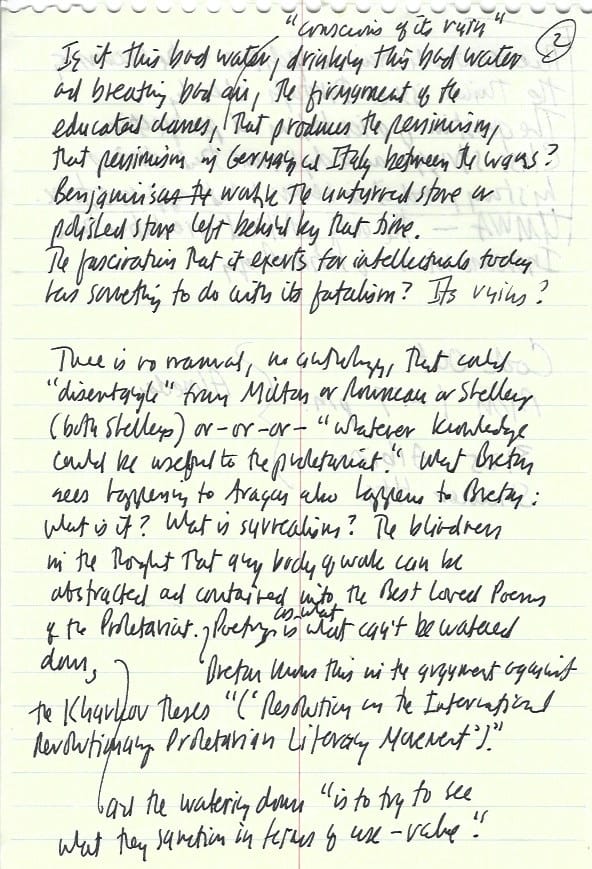 "conscious of its ruin"
2
Is it this bad water, drinking this bad water
and breathing bad air, the firmament of the
educated classes, that produces the pessimism,
that pessimism in Germany and Italy between the wars?
Benjamin's work is the unturned stone or
polished stone left behind by that time.
The fascination that it exerts for intellectuals today
has something to do with its fatalism? Its ruins?
There is no manual, no anthology, that could
"disentangle" from Milton or Rousseau or Shelley
(both Shelleys) or-or-or- "whatever knowledge
could be useful to the proletariat." What Breton
sees happening to Aragon also happens to Breton:
what is it? What is surrealism? The blindness
in the thought that any body of work can be
abstracted and contained into the Best Loved Poems
of the Proletariat. Poetry is as what can't be watered
down,
Breton knows this in the argument against
the Kharkov theses "('Resolution on the International
Revolutionary Proletarian Literary Movement')."
and the watering down "is to try to see
what they sanction in terms of use-value."